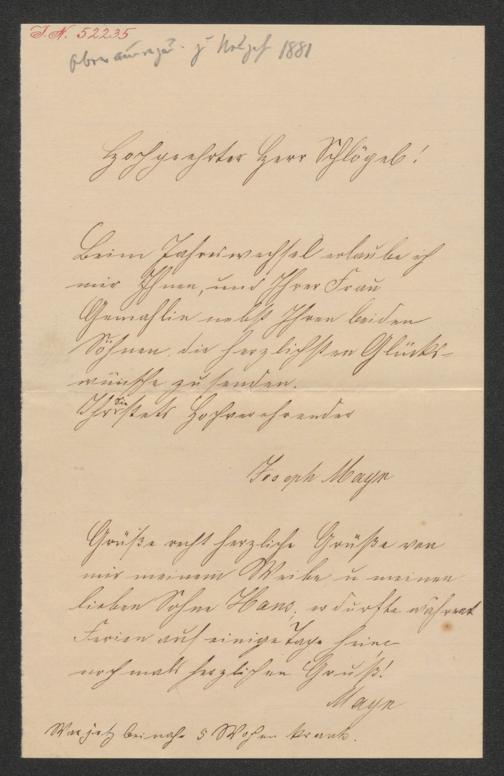 I. N. 52235
1881
Hochgeehrter Herr Schlögel!
Beim Jahreswechsel erlaube ich
mir Ihnen, und Ihrer Frau
Gemahlin nebst Ihren beiden
Söhnen die herzlichsten Glücks-
wünsche zu senden.
Ihr Sie stets Hochverehrender
Joseph Mayr
Grüße recht herzliche Grüße von
mir meinem Weibe u meinen
lieben Sohne Hans, er durfte während
Ferien auf einige Tage heim
nochmals herzlichen Gruß!
Mayr
War jetz beinahe 5 Wochen krank.